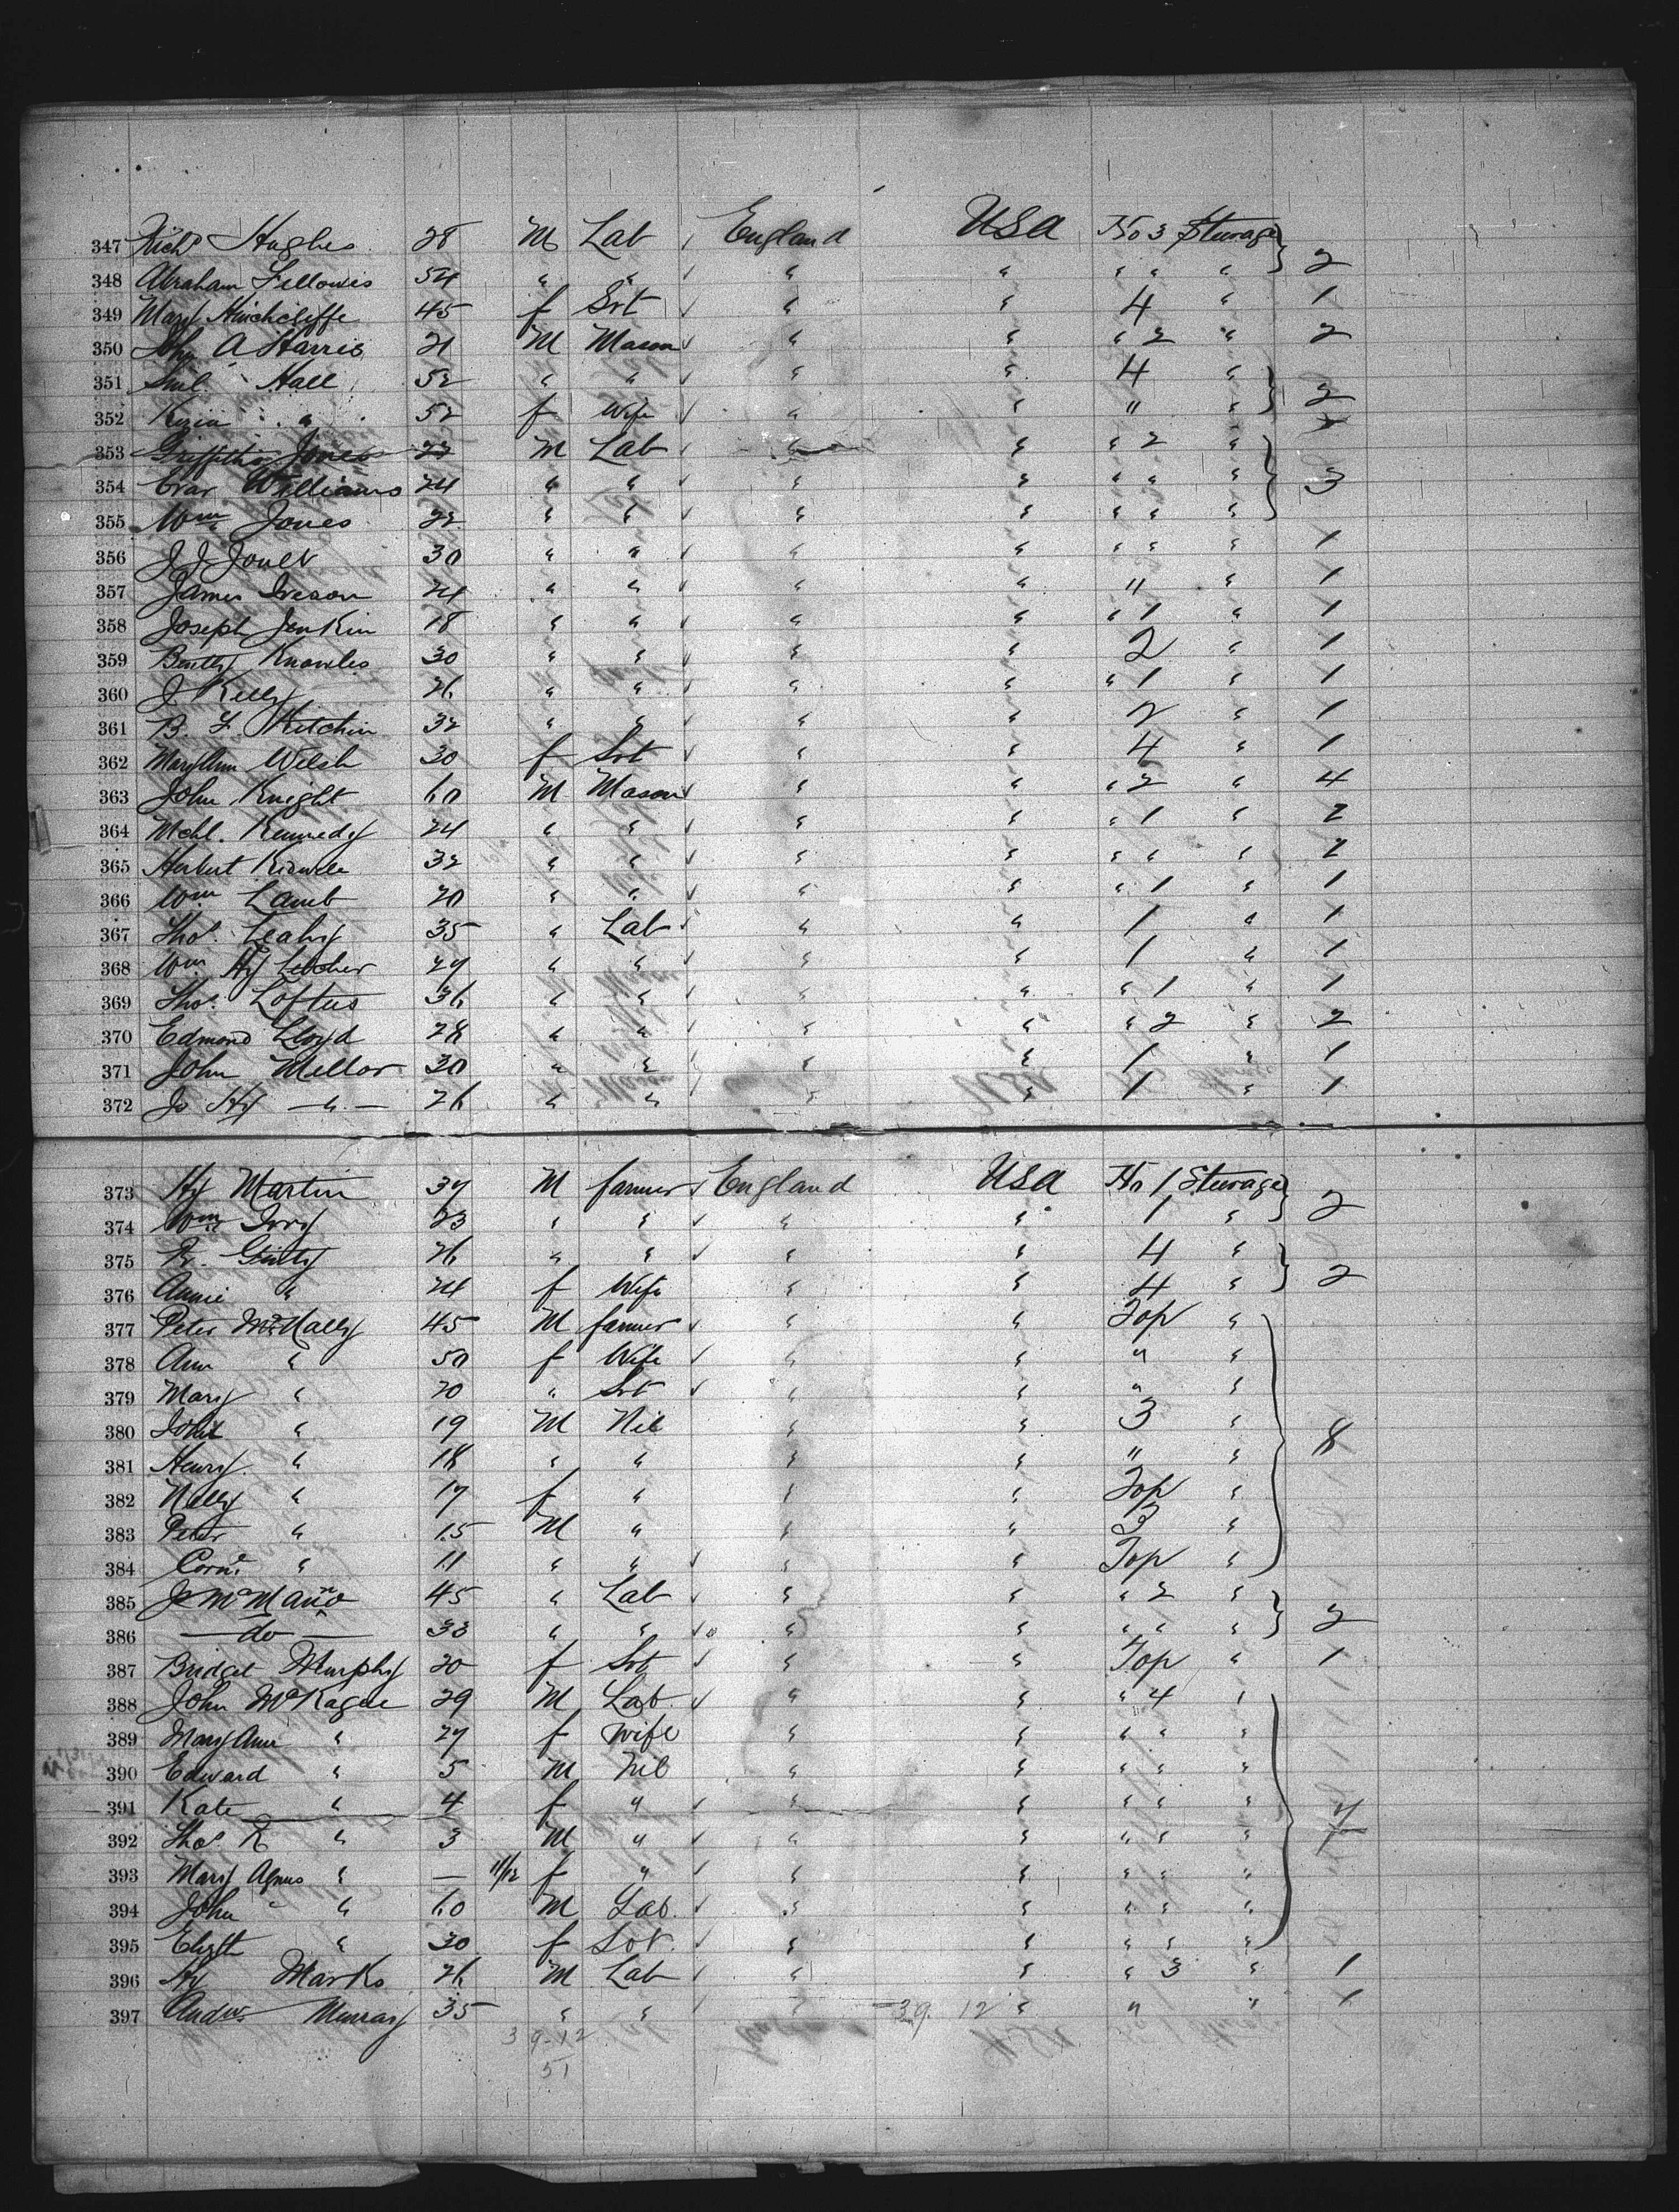 347 Richd Hughes 28 M Lab England USA No 3 Sturage } 2
348 Abraham Fellowes 54 " " " " " " "
349 Mary Hinchcliffe 45 f Svt " " 4 " 1
350 Jhn A Harris 21 M Mason " " " 2 " 2
351 Sml. Hall 52 " " " " 4 " } 2
352 Kezia " 52 f Wife " " " "
353 Griffiths Jones 23 M Lab " " " 2 " } 3
354 Evan Williams 24 " " " " " " "
355 Wm Jones 22 " " " " " " "
356 J J Jones 30 " " " " " " " 1
357 James Iveson 24 " " " " " " 1
358 Joseph Jenkin 18 " " " " " 1 " 1
359 Bently Knowles 30 " " " " 2 " 1
360 J Kelly 26 " " " " " 1 " 1
361 B. F. Kitchin 32 " " " " 2 " 1
362 Mary Ann Welsh 30 f Svt " " 4 " 1
363 John Knight 60 M Mason " " " 2 " 4
364 Mchl. Kennedy 24 " " " " " 1 " 2
365 Herbert 32 " " " " " " " 2
366 Wm Lamb 20 " " " " " 1 " 1
367 Thos. Leahy 35 " Lab " " 1 " 1
368 Wm Hy 27 " " " " 1 " 1
369 Thos. Loftus 36 " " " " " 1 " 1
370 Edmond Lloyd 28 " " " " " 2 " 2
371 John Mellor 30 " " " " 1 " 1
372 Jo Hy — " — 26 " " " " 1 " 1
373 Hy Martin 37 M farmer England USA No 1 Sturage } 2
374 Wm 23 " " " " 1 "
375 26 " " " " 4 " } 2
376 Annie " 24 f Wife " " 4 "
377 Peter McNally 45 M farmer " " Top " } 8
378 Ann " 50 f Wife " " " "
379 Mary " 20 " Svt " " " "
380 John " 19 M Nil " " 3 "
381 Henry " 18 " " " " " "
382 Nelly " 17 f " " " Top "
383 Peter " 15 M " " " 3 "
384 Corns " 11 " " " " Top "
385 45 " Lab " " " 2 " } 2
386 — do — 33 " " " " " " "
387 Bridget Murphy 20 f Svt " " Top " 1
388 John McKague 29 M Lab " " " 4 "
389 Mary Ann " 27 f wife " " " " "
390 Edward " 5 M Nil " " " " "
391 Kate " 4 f " " " " " " } 7
392 Thos. R " 3 M " " " " " "
393 Mary Agnes " — 11/12 f " " " " " "
394 John " 60 M Lab. " " " " "
395 Elizth " 30 f Svt. " " " " "
396 Hy Marks 26 M Lab " " " 3 " 1
397 Andw. Murray 35 " " " 39.12 " " " 1
39-12
51